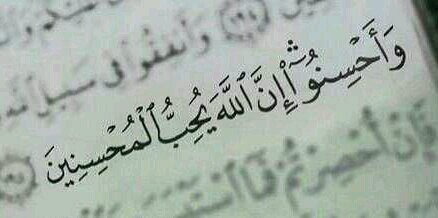 وَأَنفِقُوا۟ فِى سَبِيلِ ٱللَّهِ
وَأَحْسِنُوٓا۟ۛ إِنَّ ٱللَّهَ يُحِبُّ ٱلْمُحْسِنِينَ
فَإِنْ أُحْصِرْتُمْ فَمَا ٱسْتَيْسَرَ